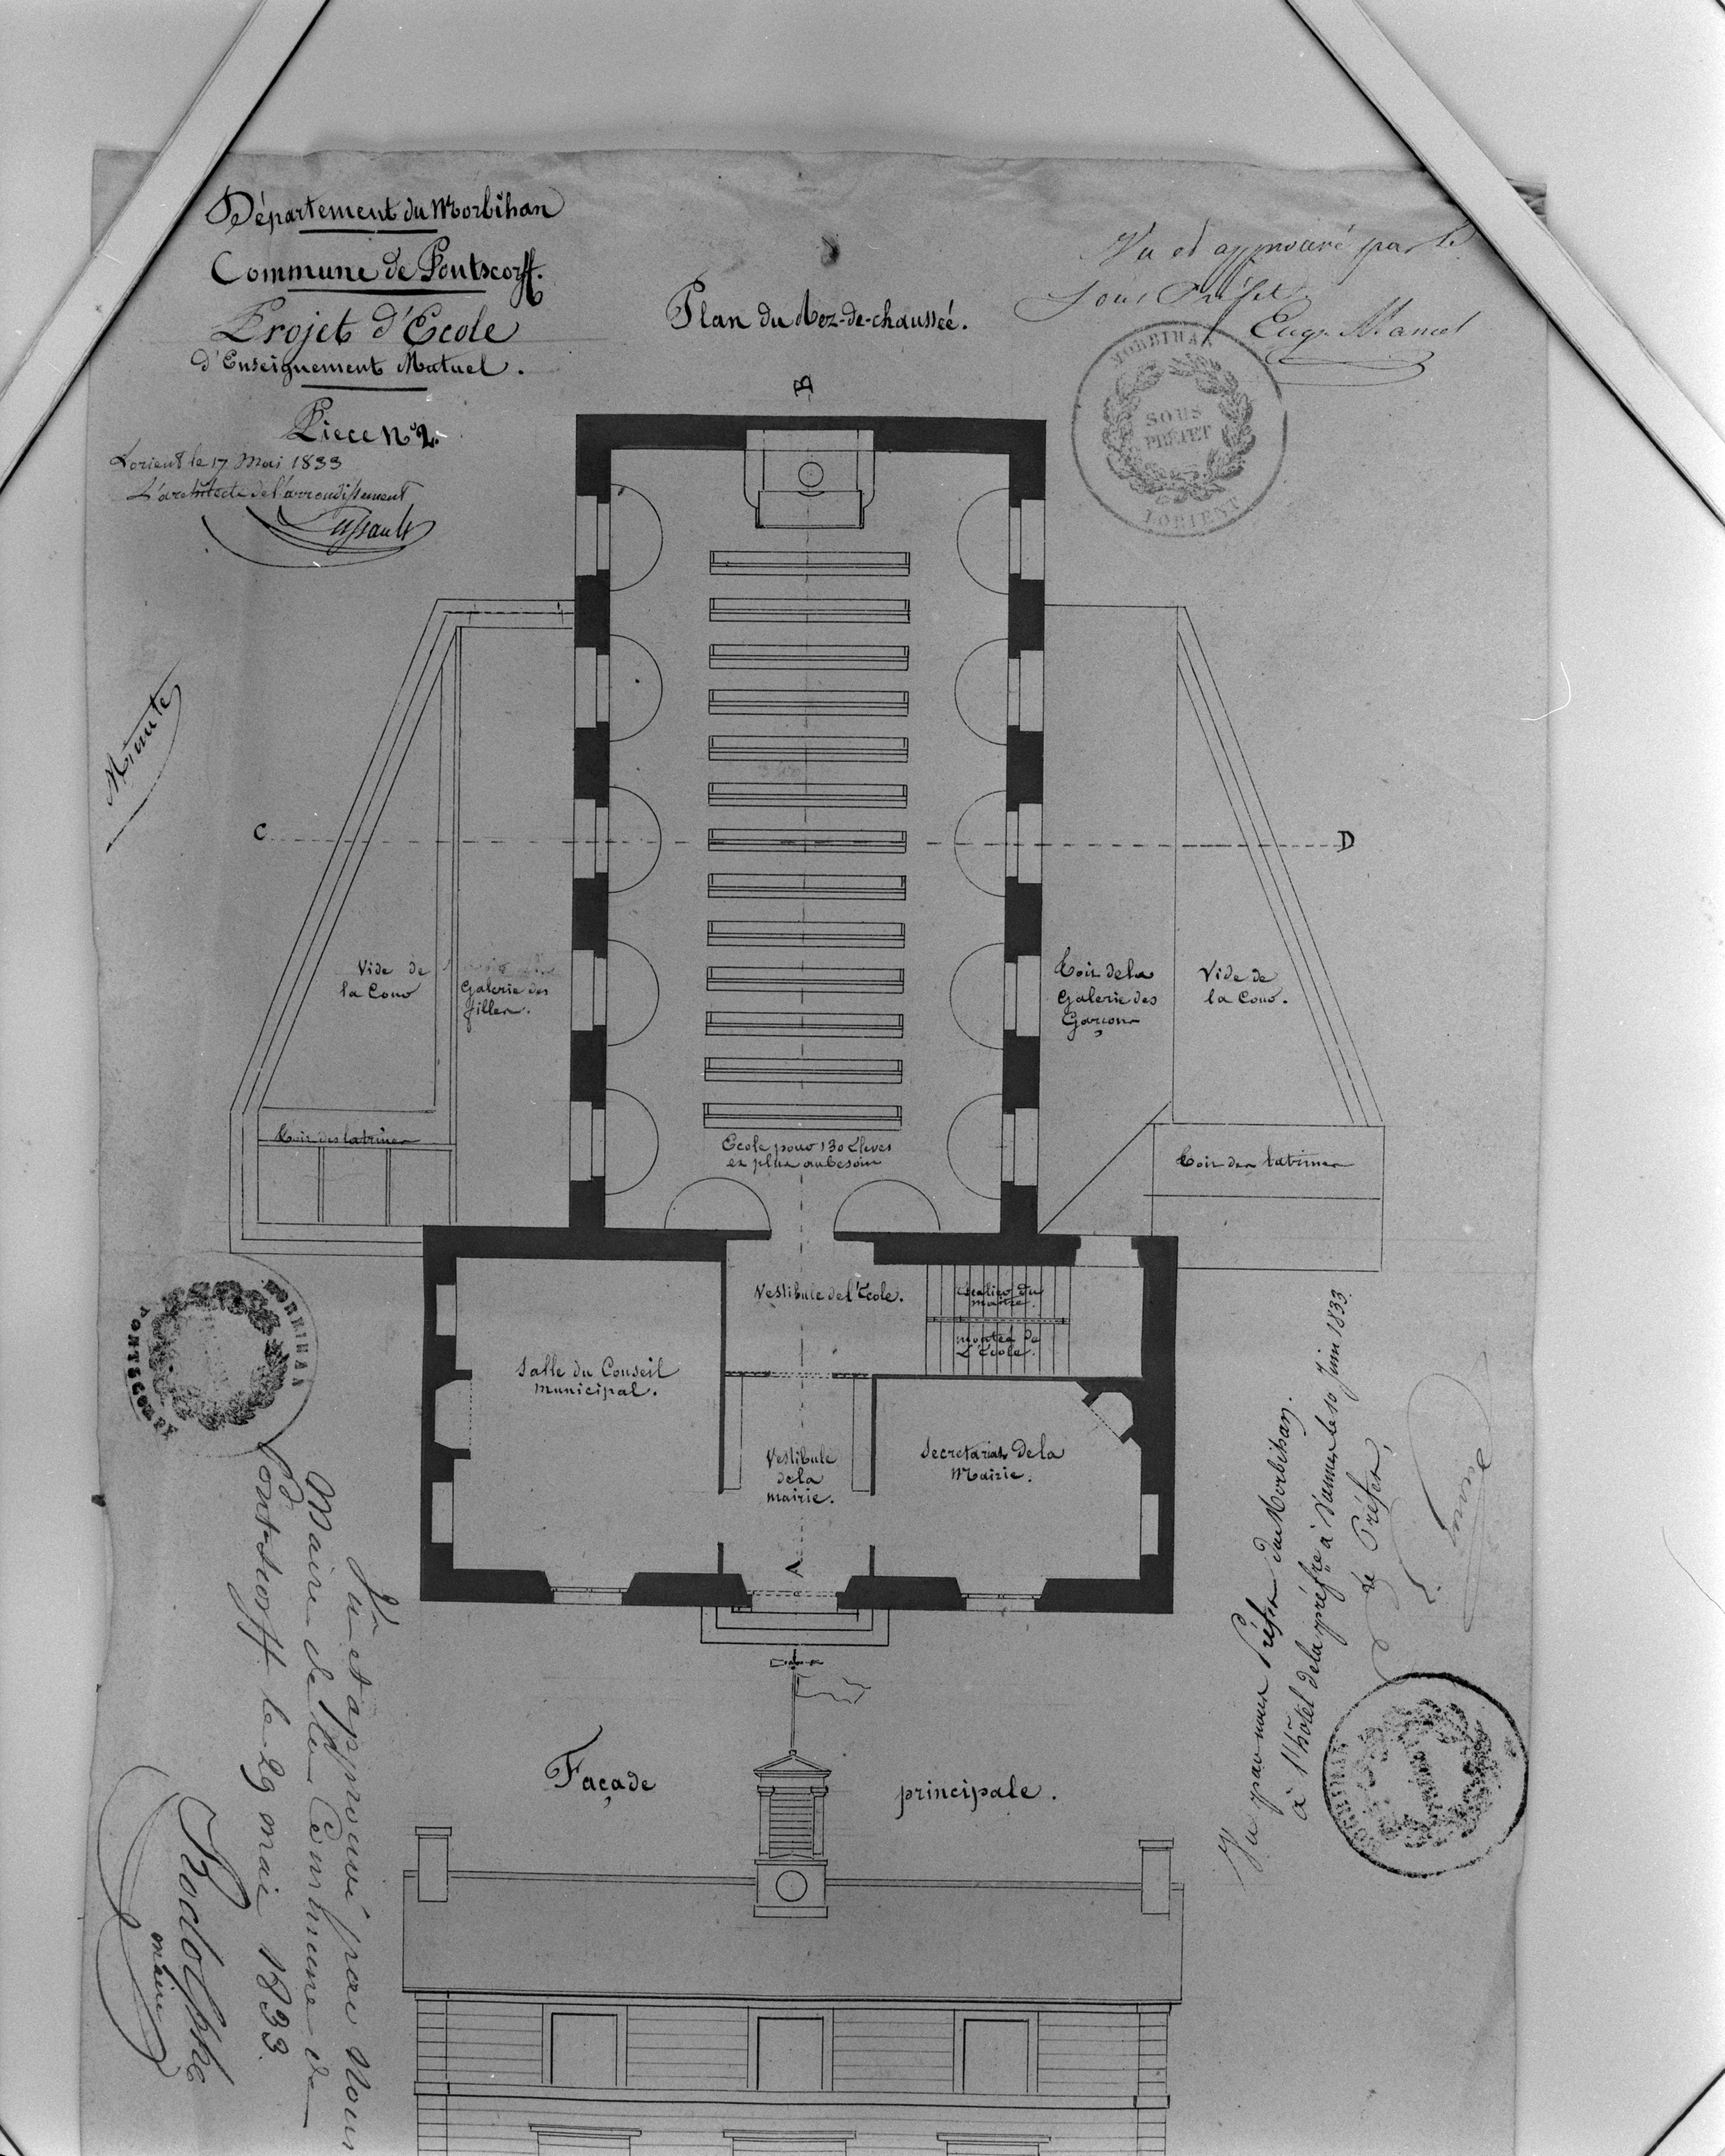 Département du Morbihan
Commune de Pontscorff.
Projet d'Ecole
d'Enseignement Mutuel.
Piece N° 2.
Lorient le 17 Mai 1833
L'architecte de l'arrondissement
Lussault
Plan du Rez-de-chaussée.
Vu et approuvé par le
Sous Préfet
Eug. Mancel
MORBIHAN
SOUS
PRÉFET
LORIENT
B
Minute
C
D
Vide de
la Cour
Galerie des
filles.
Toit de la
Galerie des
Garçons
Vide de
la Cour.
Toit des latrines
Ecole pour 130 Eleves
et plus au besoin
Toit des latrines
Vestibule de l'Ecole.
Escalier du
maitre.
montée de
L'Ecole.
Salle du Conseil
Municipal.
Vestibule
de la
mairie.
Secretariat de la
Mairie.
A
MORBIHAN
PONTSCORFF
Vu et approuvé par Nous
Maire de la Commune de
Pontscorff le 29 mai 1833.
Rodolphe
maire
Vu par nous Préfet du Morbihan.
à l'hôtel de la préfre à Vannes le 10 Juin 1833.
Le Préfet,
MORBIHAN
Façade principale.